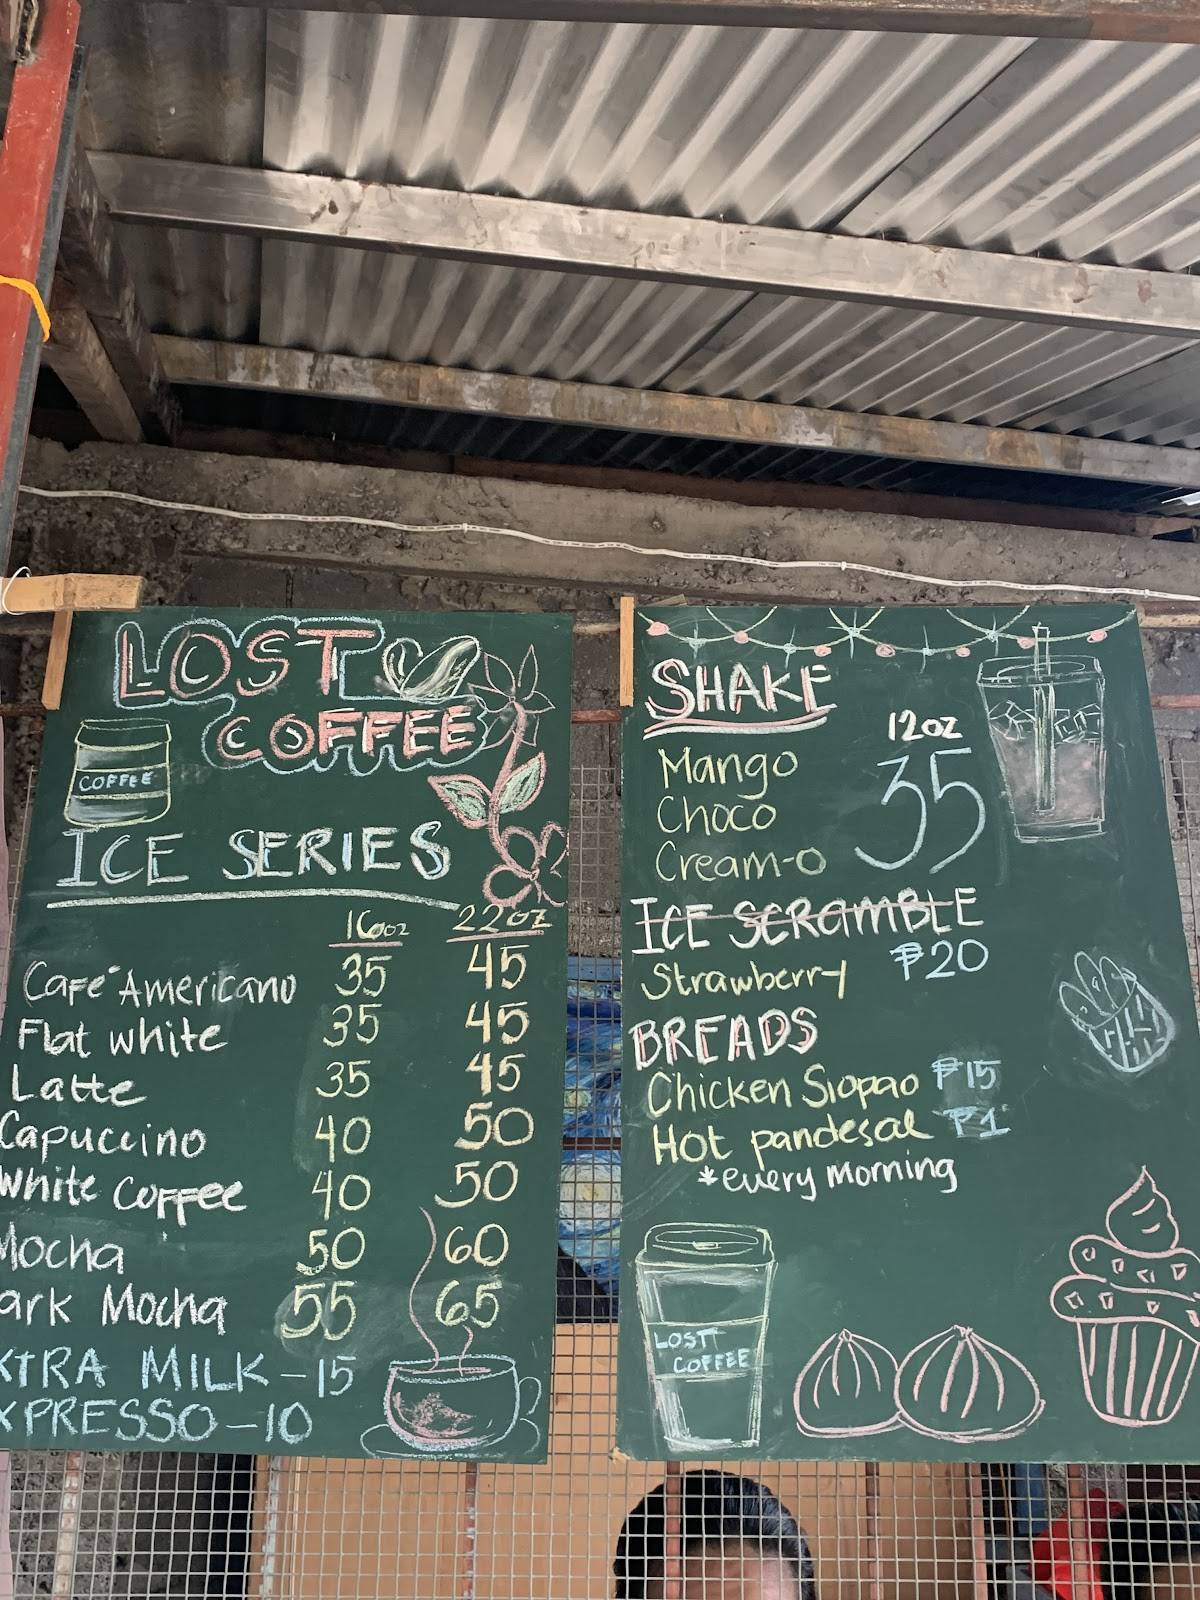 LOST
COFFEE
COFFEE
ICE SERIES
16oz 22oz
Café Americano 35 45
Flat white 35 45
Latte 35 45
Capuccino 40 50
White Coffee 40 50
Mocha 50 60
ark Mocha 55 65
XTRA MILK - 15
XPRESSO - 10
SHAKE
12oz
Mango
Choco
Cream-O
35
ICE SCRAMBLE
Strawberry ₱20
BREADS
Chicken Siopao ₱15
Hot pandesal ₱1
*every morning
LOST
COFFEE